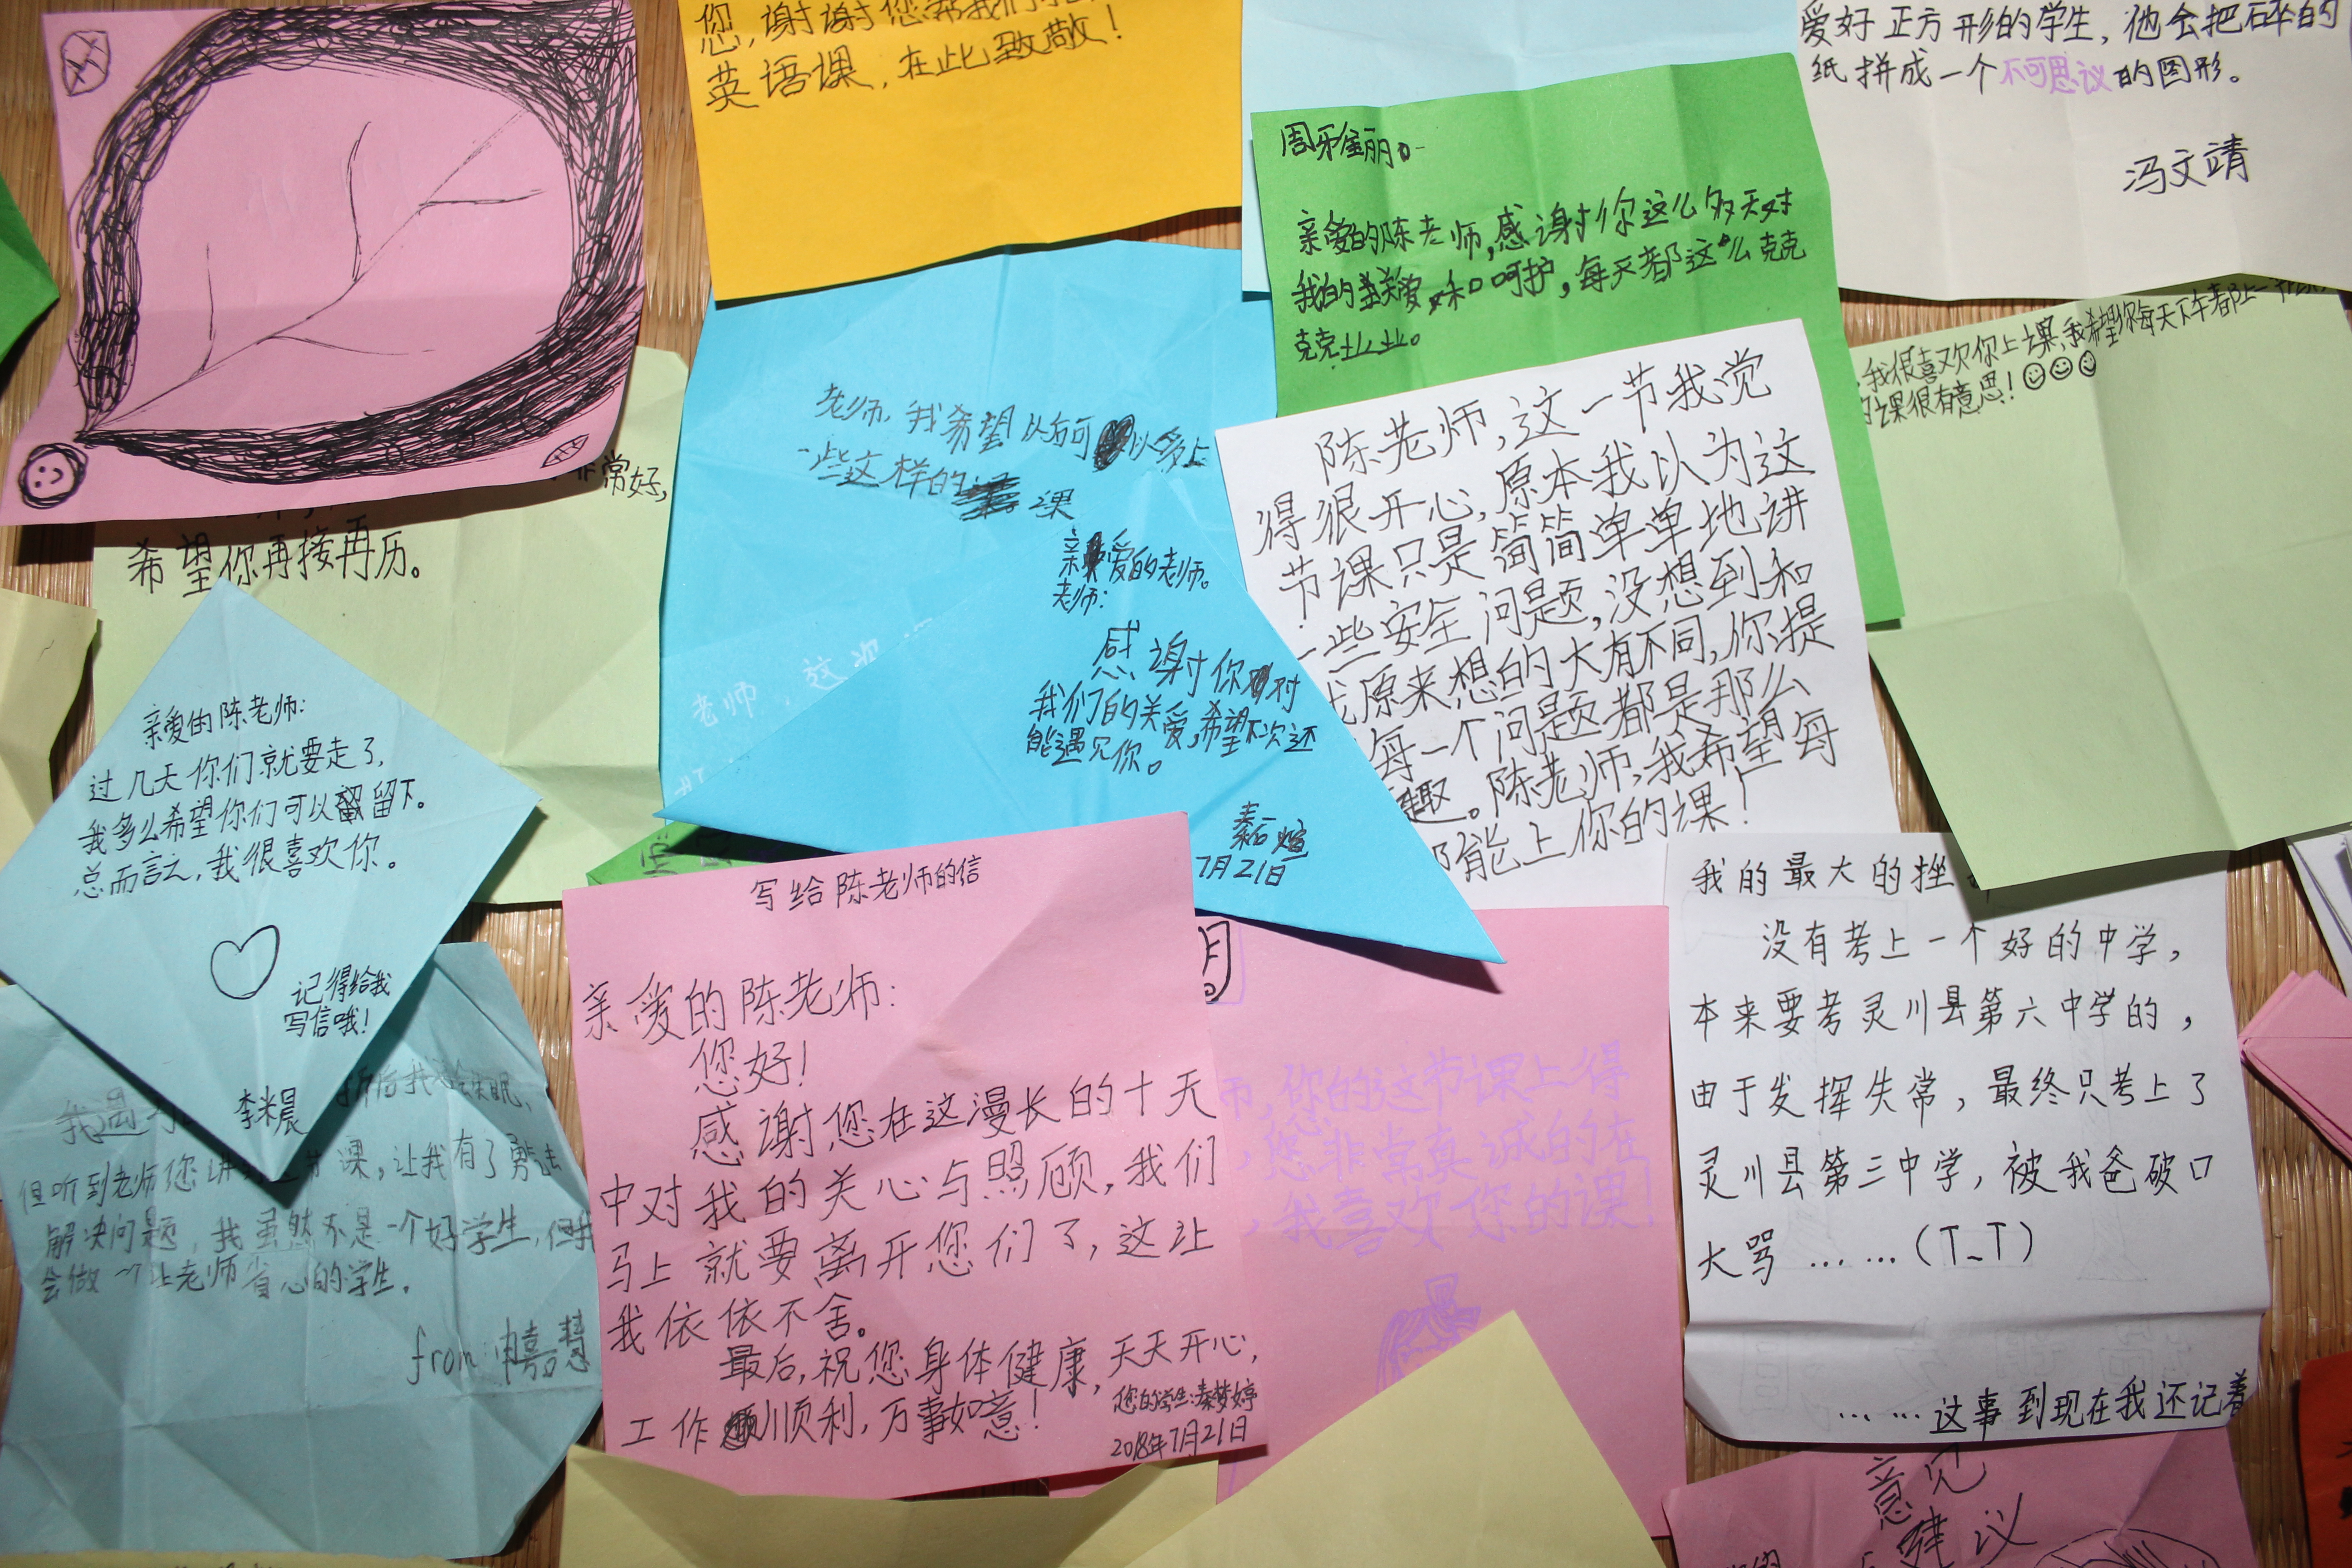 您,谢谢您帮我们
英语课,在此致敬!
爱好正方形的学生,他会把碎的
纸拼成一个不可思议的图形。
冯文靖
亲爱的陈老师,感谢你这么多天对
我的关爱和呵护,每天都这么克克
克克业业。
我很喜欢你上课,我希望你每天下午都上一节课
课很有意思!
非常好,
希望你再接再历。
老师,我希望以后可以多上
一些这样的课
亲爱的老师。
老师:
感谢你对
我们的关爱,希望下次还
能遇见你。
7月21日
老师,这次
陈老师,这一节我觉
得很开心,原本我以为这
节课只是简简单单地讲
一些安全问题,没想到和
我原来想的大有不同,你提
每一个问题都是那么
趣。陈老师,我希望每
能上你的课!
亲爱的陈老师:
过几天你们就要走了,
我多么希望你们可以留下。
总而言之,我很喜欢你。
记得给我
写信哦!
李米晨
但听到老师您讲 课,让我有了勇气去
解决问题,我虽然不是一个好学生,但我
会做一个让老师省心的学生。
from:
写给陈老师的信
亲爱的陈老师:
您好!
感谢您在这漫长的十天
中对我的关心与照顾,我们
马上就要离开您们了,这让
我依依不舍。
最后,祝您身体健康,天天开心,
工作顺利,万事如意!
您的学生:秦梦婷
2018年7月21日
师,你的这节课上得
,您非常真诚的在
,我喜欢您的课!
我的最大的挫
没有考上一个好的中学,
本来要考灵川县第六中学的,
由于发挥失常,最终只考上了
灵川县第三中学,被我爸破口
大骂……(T_T)
……这事到现在我还记着
意见
建议